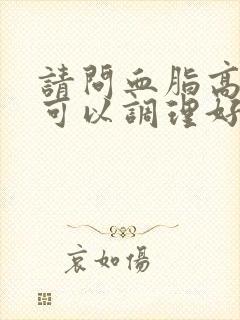 請問血脂高
可以調理好
哀如傷